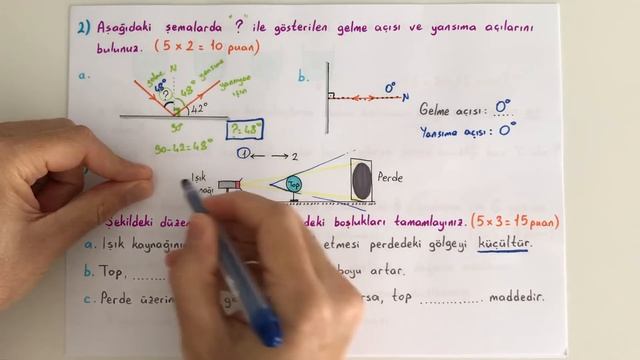 2) Aşağıdaki şemalarda ? ile gösterilen gelme açısı ve yansıma açılarını
bulunuz. (5 x 2 = 10 puan)
a.
gelme
N
48°
?
48°
yansıma
yansıyan
ışın
42°
90°
?=48°
90-42=48°
b.
0°
N
Gelme açısı: 0°
Yansıma açısı: 0°
1
2
Işık
Top
Perde
Şekildeki boşlukları tamamlayınız. (5x3=15 puan)
a. Işık etmesi perdedeki gölgeyi küçültür.
b. Top, ........ boyu artar.
c. Perde top ............. maddedir.